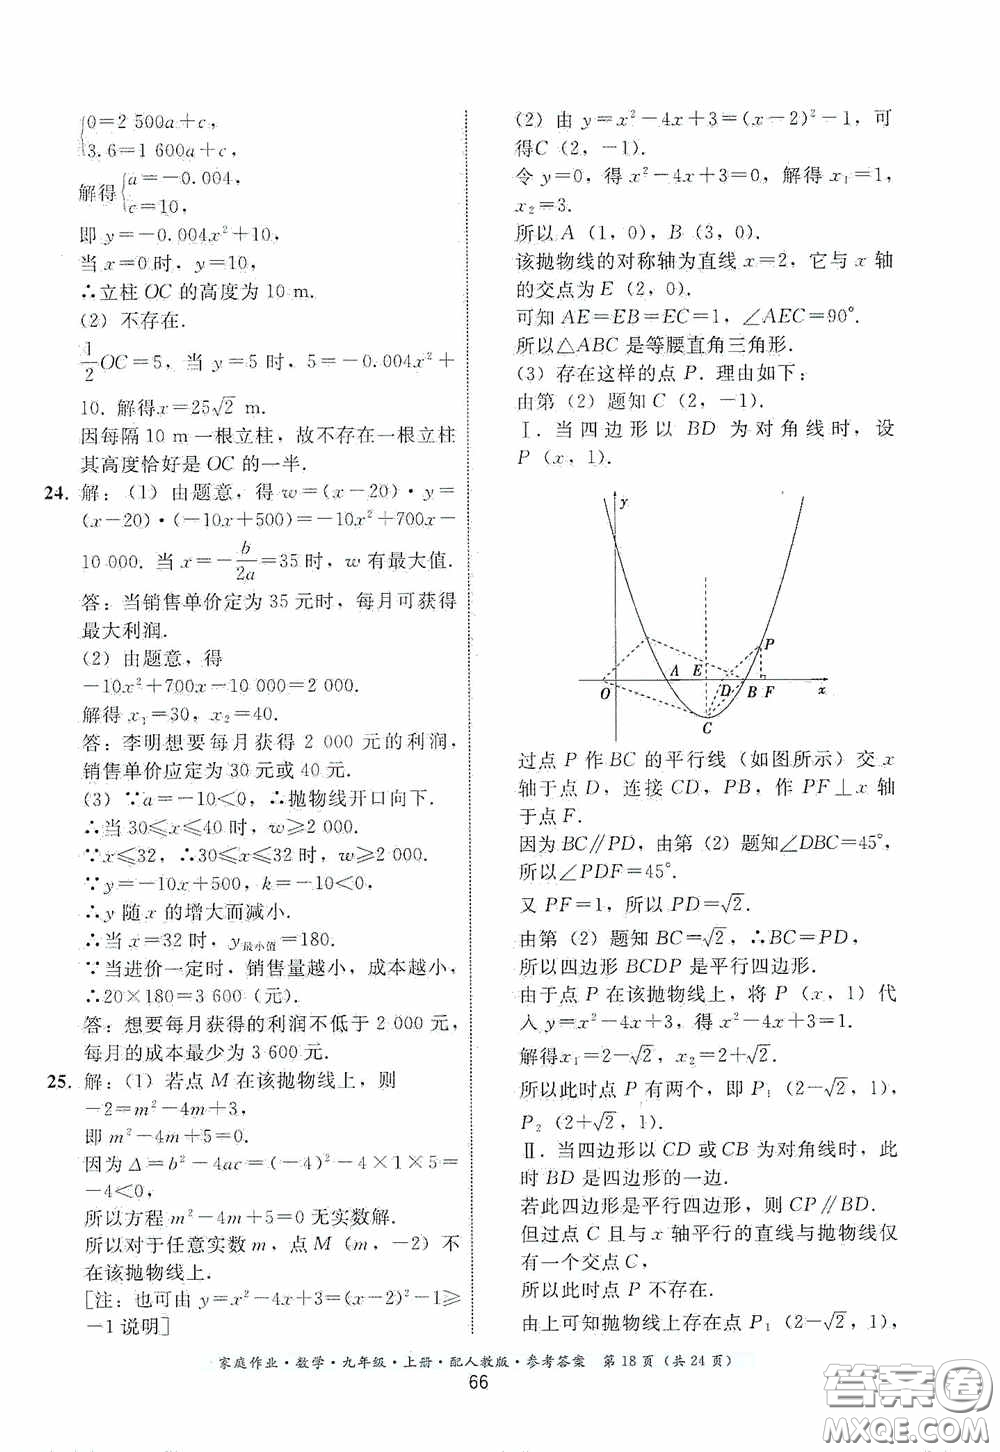 0=2 500a+c,
3.6=1 600a+c,
解得{a=-0.004,
c=10,
即 y=-0.004x²+10,
当 x=0 时, y=10,
∴立柱 OC 的高度为 10 m.
(2) 不存在.
1/2 OC=5, 当 y=5 时, 5=-0.004x²+
10. 解得x=25√2 m.
因每隔 10 m 一根立柱, 故不存在一根立柱
其高度恰好是 OC 的一半.
24. 解: (1) 由题意, 得 w=(x-20)·y=
(x-20)·(-10x+500)=-10x²+700x-
10 000. 当 x=-b/2a=35 时, w 有最大值.
答: 当销售单价定为 35 元时, 每月可获得
最大利润.
(2) 由题意, 得
-10x²+700x-10 000=2 000.
解得 x₁=30, x₂=40.
答: 李明想要每月获得 2 000 元的利润,
销售单价应定为 30 元或 40 元.
(3) ∵a=-10<0, ∴抛物线开口向下.
∴当 30≤x≤40 时, w≥2 000.
∵x≤32, ∴30≤x≤32 时, w≥2 000.
∵y=-10x+500, k=-10<0,
∴y 随 x 的增大而减小.
∴当 x=32 时, y最小值=180.
∵当进价一定时, 销售量越小, 成本越小,
∴20×180=3 600 (元).
答: 想要每月获得的利润不低于 2 000 元,
每月的成本最少为 3 600 元.
25. 解: (1) 若点 M 在该抛物线上, 则
-2=m²-4m+3,
即 m²-4m+5=0.
因为 Δ=b²-4ac=(-4)²-4×1×5=
-4<0,
所以方程 m²-4m+5=0 无实数解.
所以对于任意实数 m, 点 M (m, -2) 不
在该抛物线上.
[注: 也可由 y=x²-4x+3=(x-2)²-1≥
-1 说明]
(2) 由 y=x²-4x+3=(x-2)²-1, 可
得C (2, -1).
令 y=0, 得 x²-4x+3=0, 解得 x₁=1,
x₂=3.
所以 A (1, 0), B (3, 0).
该抛物线的对称轴为直线 x=2, 它与 x 轴
的交点为 E (2, 0).
可知 AE=EB=EC=1, ∠AEC=90°.
所以△ABC 是等腰直角三角形.
(3) 存在这样的点 P. 理由如下:
由第 (2) 题知 C (2, -1).
Ⅰ. 当四边形以 BD 为对角线时, 设
P (x, 1).
y
P
A E
O D B F x
C
过点 P 作 BC 的平行线 (如图所示) 交 x
轴于点 D, 连接 CD, PB, 作 PF⊥x 轴
于点 F.
因为 BC∥PD, 由第 (2) 题知∠DBC=45°,
所以∠PDF=45°.
又 PF=1, 所以 PD=√2.
由第 (2) 题知 BC=√2, ∴BC=PD,
所以四边形 BCDP 是平行四边形.
由于点 P 在该抛物线上, 将 P (x, 1) 代
入 y=x²-4x+3, 得 x²-4x+3=1.
解得x₁=2-√2, x₂=2+√2.
所以此时点 P 有两个, 即 P₁ (2-√2, 1),
P₂ (2+√2, 1).
Ⅱ. 当四边形以 CD 或 CB 为对角线时, 此
时 BD 是四边形的一边.
若此四边形是平行四边形, 则 CP∥BD.
但过点 C 且与 x 轴平行的直线与抛物线仅
有一个交点 C,
所以此时点 P 不存在.
由上可知抛物线上存在点 P₁ (2-√2, 1),
家庭作业·数学·九年级·上册·配人教版·参考答案 第18页(共24页)
66
答案圈
MXQE.COM